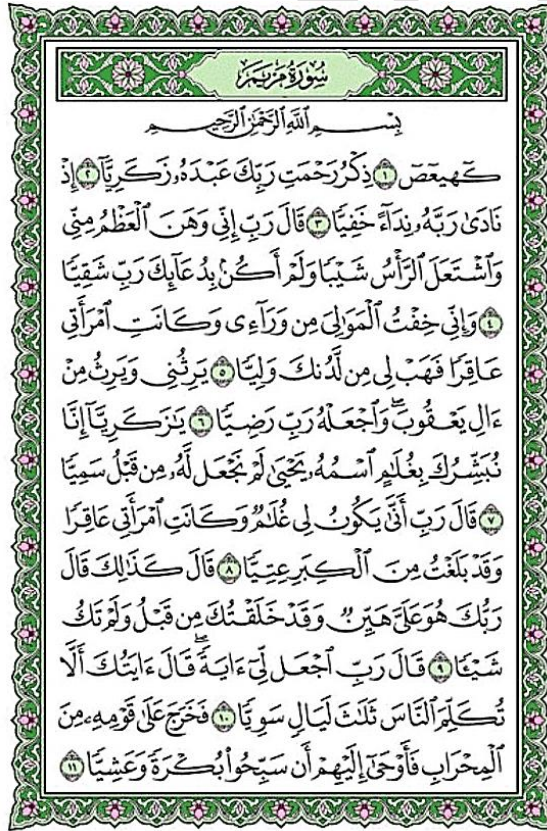 سُورَةُ مَرْيَمَ
بِسْمِ ٱللَّهِ ٱلرَّحْمَٰنِ ٱلرَّحِيمِ
كٓهيعٓصٓ ١ ذِكْرُ رَحْمَتِ رَبِّكَ عَبْدَهُۥ زَكَرِيَّآ ٢ إِذْ
نَادَىٰ رَبَّهُۥ نِدَآءً خَفِيًّا ٣ قَالَ رَبِّ إِنِّى وَهَنَ ٱلْعَظْمُ مِنِّى
وَٱشْتَعَلَ ٱلرَّأْسُ شَيْبًا وَلَمْ أَكُنۢ بِدُعَآئِكَ رَبِّ شَقِيًّا
٤ وَإِنِّى خِفْتُ ٱلْمَوَٰلِىَ مِن وَرَآءِى وَكَانَتِ ٱمْرَأَتِى
عَاقِرًا فَهَبْ لِى مِن لَّدُنكَ وَلِيًّا ٥ يَرِثُنِى وَيَرِثُ مِنْ
ءَالِ يَعْقُوبَ ۖ وَٱجْعَلْهُ رَبِّ رَضِيًّا ٦ يَٰزَكَرِيَّآ إِنَّا
نُبَشِّرُكَ بِغُلَٰمٍ ٱسْمُهُۥ يَحْيَىٰ لَمْ نَجْعَل لَّهُۥ مِن قَبْلُ سَمِيًّا
٧ قَالَ رَبِّ أَنَّىٰ يَكُونُ لِى غُلَٰمٌ وَكَانَتِ ٱمْرَأَتِى عَاقِرًا
وَقَدْ بَلَغْتُ مِنَ ٱلْكِبَرِ عِتِيًّا ٨ قَالَ كَذَٰلِكَ قَالَ
رَبُّكَ هُوَ عَلَىَّ هَيِّنٌ وَقَدْ خَلَقْتُكَ مِن قَبْلُ وَلَمْ تَكُ
شَيْـًٔا ٩ قَالَ رَبِّ ٱجْعَل لِّىٓ ءَايَةً ۚ قَالَ ءَايَتُكَ أَلَّا
تُكَلِّمَ ٱلنَّاسَ ثَلَٰثَ لَيَالٍ سَوِيًّا ١٠ فَخَرَجَ عَلَىٰ قَوْمِهِۦ مِنَ
ٱلْمِحْرَابِ فَأَوْحَىٰٓ إِلَيْهِمْ أَن سَبِّحُوا۟ بُكْرَةً وَعَشِيًّا ١١